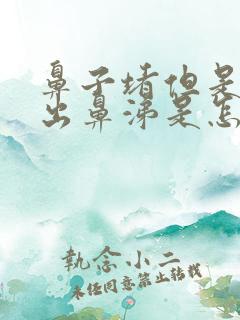 鼻子堵但是
出鼻涕是怎
執念小二
未经同意禁止转载